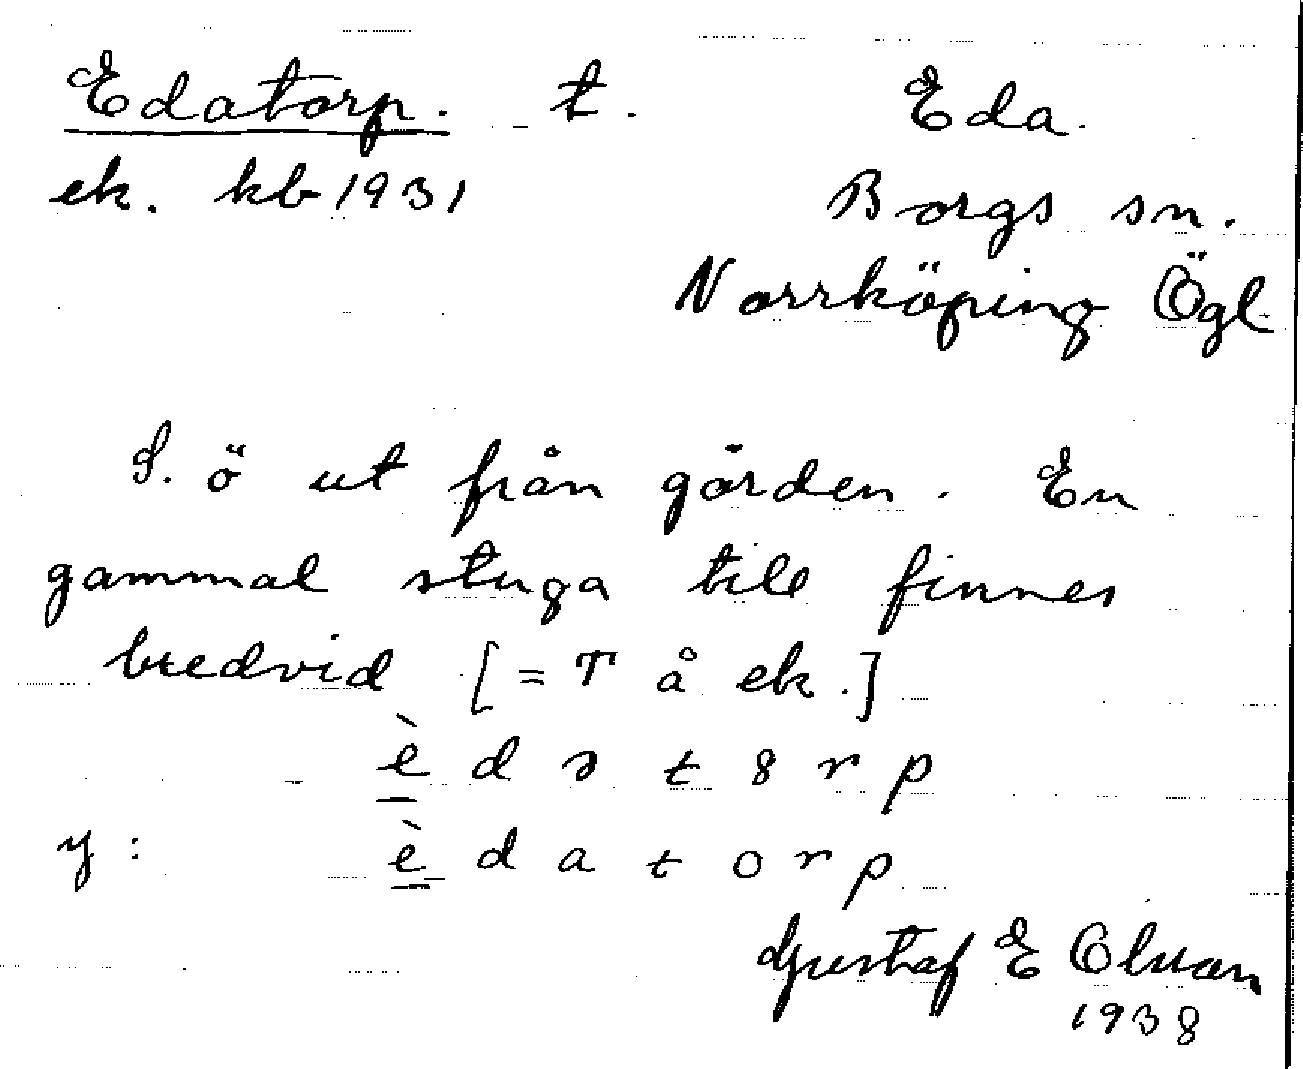 Edatorp. t. Eda.
ek. kb 1931 Borgs sn.
Norrköping Ögl.
S. ö ut från gården. En
gammal stuga till finnes
bredvid [= T å ek.]
è d ə t 8 r p
y: è d a t o r p
Gustaf E Olsson
1938